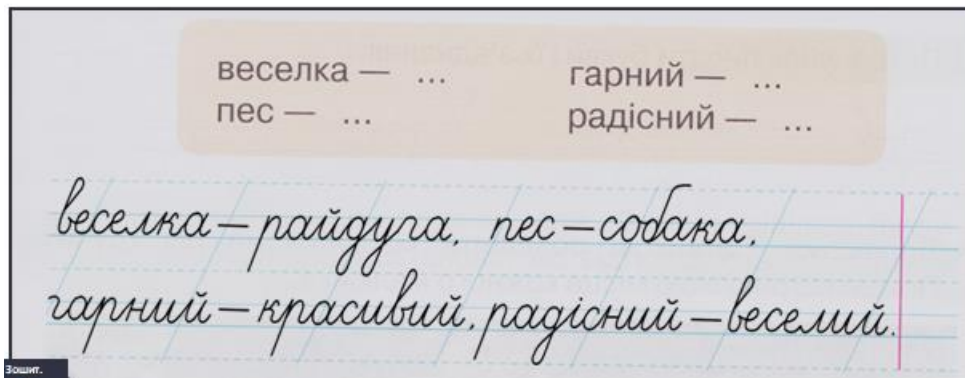 веселка — ... гарний — ...
пес — ... радісний — ...
веселка – райдуга, пес – собака,
гарний – красивий, радісний – веселий.
Зошит.